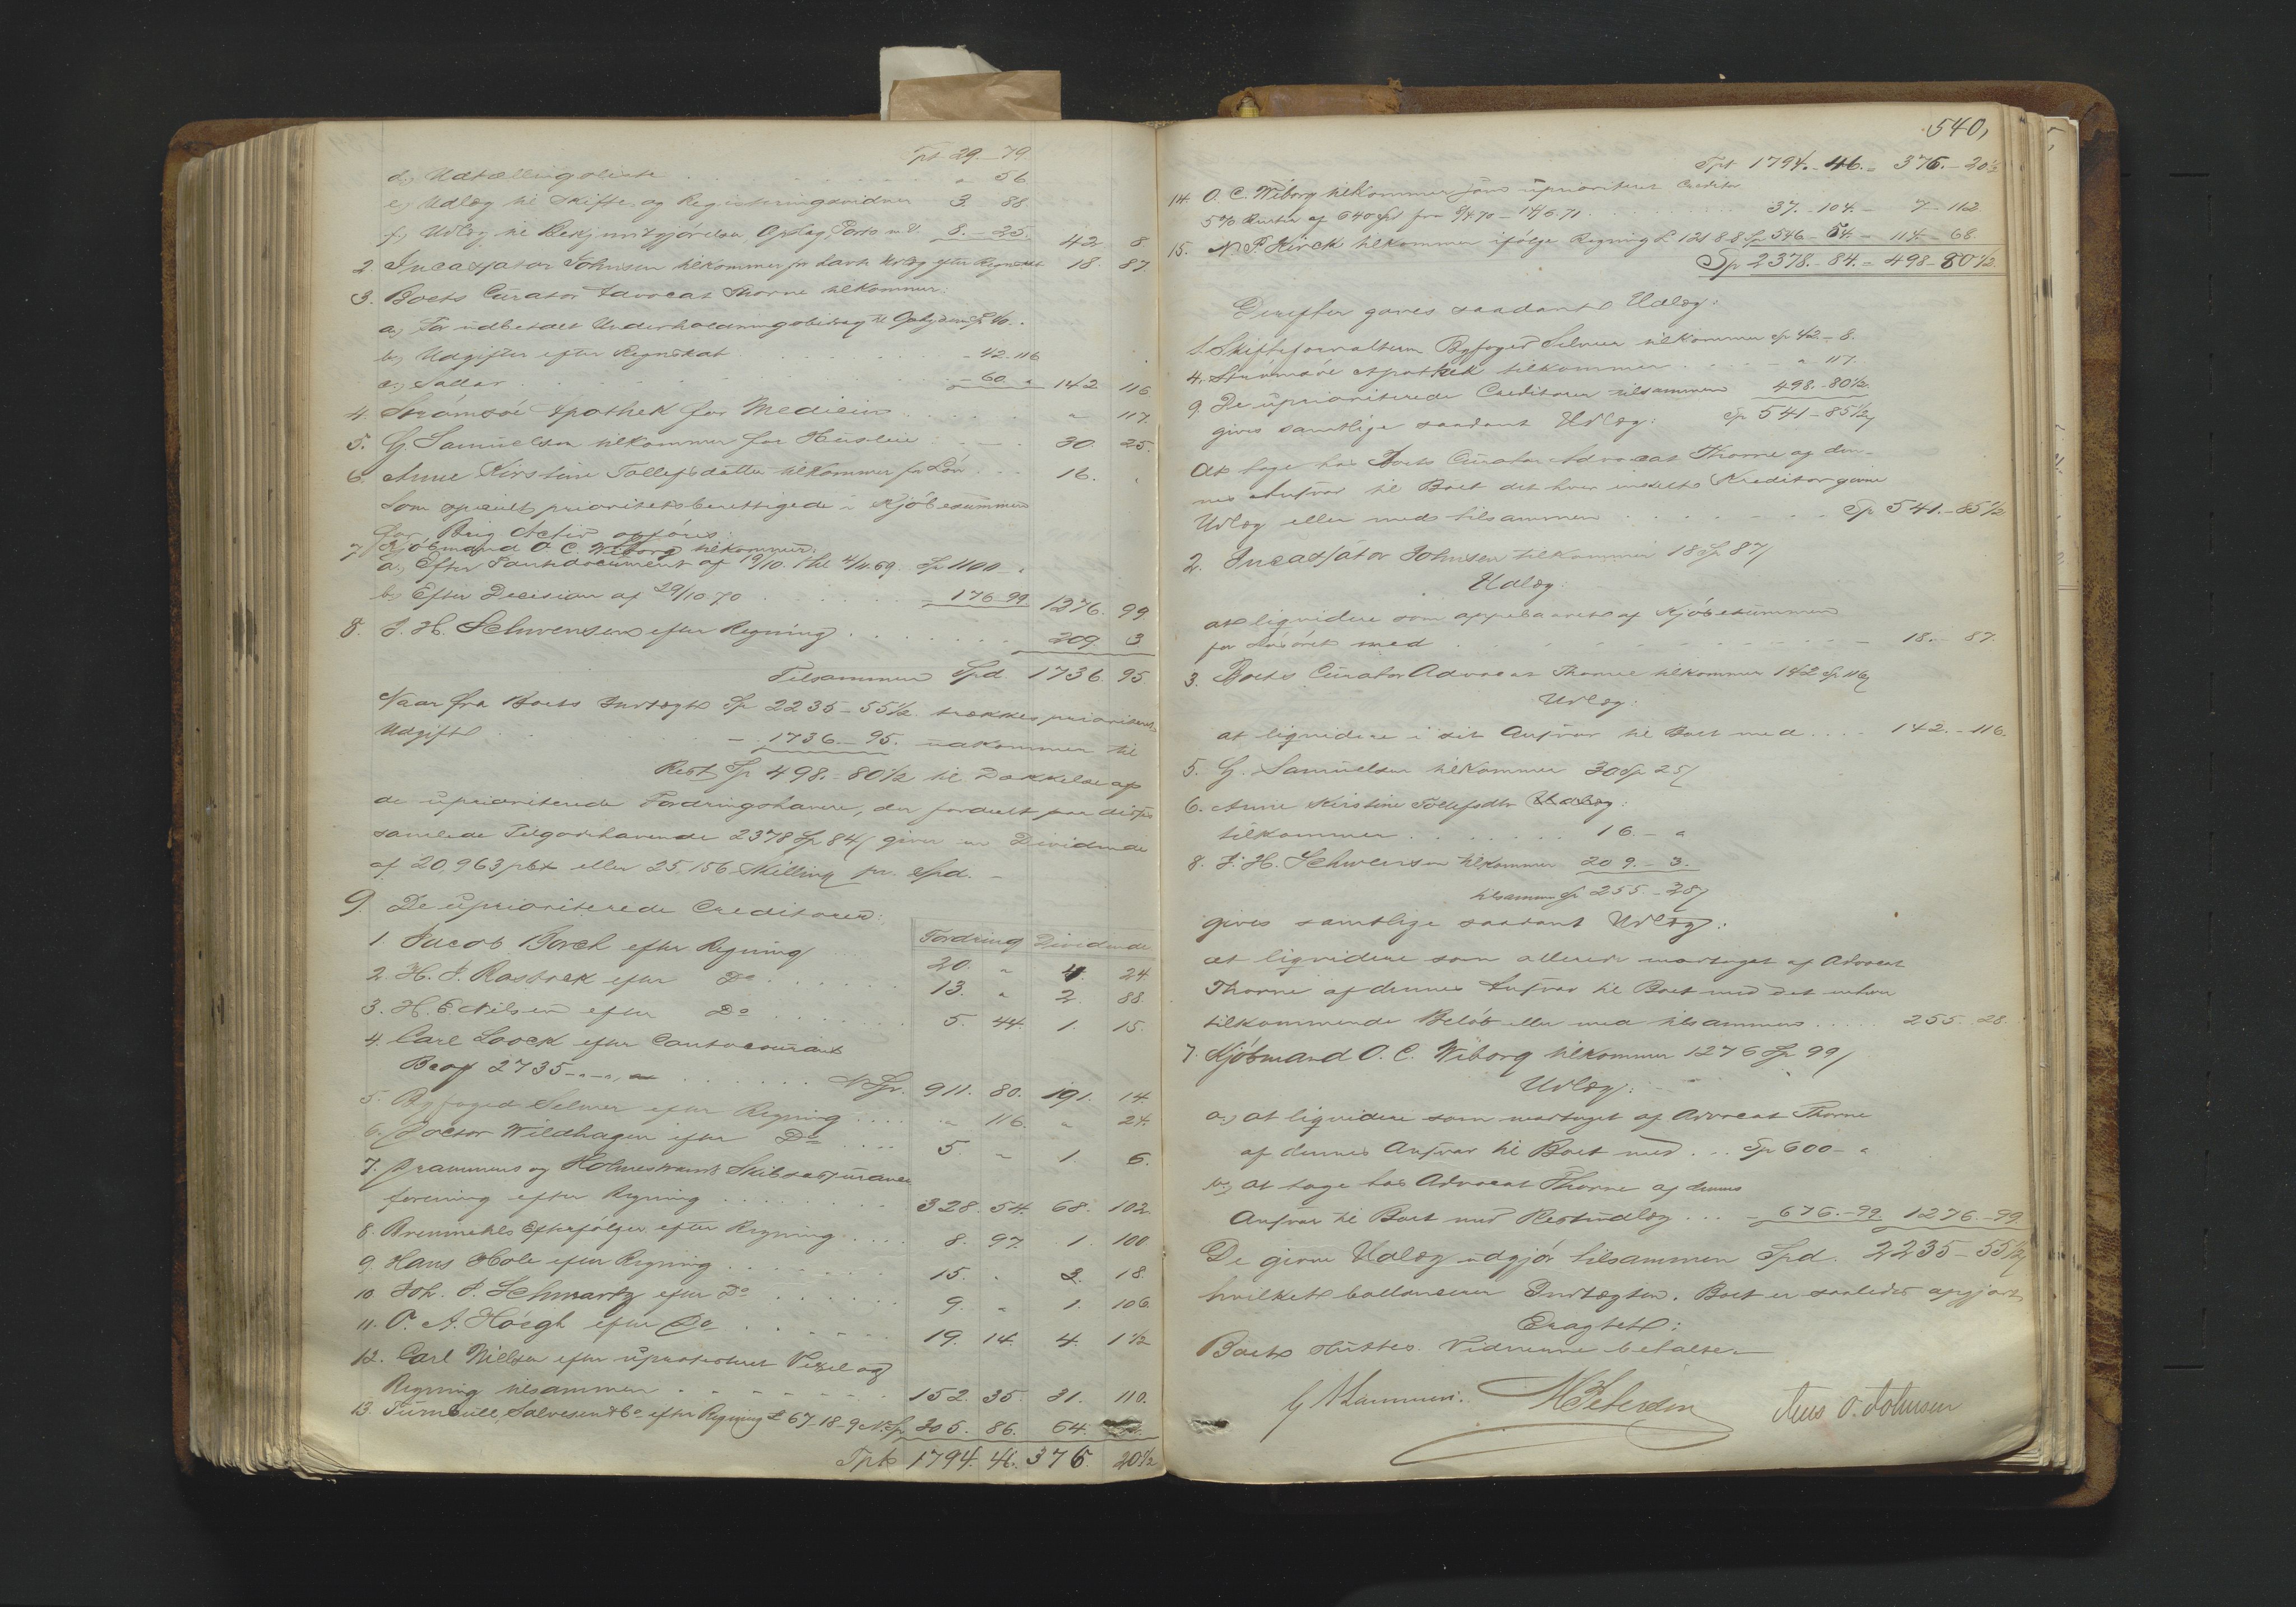 Tpt 29 - 79
d.) Udtællingsliste . . . " 56
e.) Udlæg til Skifte og Registreringsvidner 3. 88
f.) Udlæg til Bekjendtgjørelse, Opslag, Porto m.v. 8. - 25. 42. 8.
2. Incassator Johnsen tilkommer for havt efter Regnskab 18. 87.
3. Boets Curator Advocat Thorne tilkommer:
a.) For udbetalt Underholdningsbidrag til 40. "
b.) Udgifter efter Regnskab . . . - 42 - 116
c.) Sallar . . . - 60 " 142 116
4. Strømsøe Apothek for Medicin . . . " 117.
5. G. Samuelsen tilkommer for Husleie . . . 30. 25.
6. Anne Kirstine Tollefsdatter tilkommer for Løn . . . 16. "
Som specielt prioritetsberettigede i Kjøbesummen
for Brig Activ opføres:
7. Kjøbmand O. C. Wiborg tilkommer:
a.) Efter Pantedocument af 19/10. thl. 4/11.69. Sp 1100 - "
b.) Efter Decision af 29/10 70 . . . - 176 - 99 1276. 99
8. J. H. Schwensen efter Regning . . . 209. 3
Tilsammen Spd. 1736. 95.
Naar fra Boets Indtægt Sp 2235 - 55½ trækkes prioriteret
Udgift . . . - 1736. - 95. udkommer til
Rest Sp 498. - 80½ til Dækkelse af
de uprioriterede Fordringshavere, der fordeelt paa disses
samlede Tilgodehavende 2378 Sp 84 giver en Dividende
af 20,963 pCt eller 25,156 Skilling pr. Spd. -
9. De uprioriterede Creditorer:
Fordring Dividende
1. Jacob Borch efter Regning 20. " 4. 24
2. H. J. Rastock efter Do . . . 13. " 2. 88.
3. H. E. Nilsen efter Do . . . 5. 44. 1. 15.
4. Carl Loock efter Contocourant
Bcog 2735 - " - " . . . Sp. 911. 80. 191. 14.
5. Byfoged Selmer efter Regning . . . " 116. " 24.
6. Doctor Wildhagen efter Do . . . 5. " 1. 6.
7. Drammens og Holmestrands Skibsassurance
forening efter Regning . . . 328. 54. 68. 102.
8. Bremmehls Efterfølger efter Regning . . . 8. 97. 1. 100
9. Hans Hole efter Regning . . . 15. " 3. 18.
10. Joh. J. Schwartz efter Do . . . 9. " 1. 106.
11. O. A. Høegh efter Do . . . 19. 14. 4. 1½
12. Carl Nielsen efter uprotesteret Vexel og
Regning tilsammen . . . 152. 35. 31. 110.
13. Turnbull, Salvesen & Co efter Regning £ 67-18-9 Sp 305. 86. 64.
Tpt 1794. 46. 376. 20½
540,
Tpt 1794. - 46. - 376. - 20½
14. O. C. Wiborg tilkommer som uprioriteret Creditor
5% Renter af 640 Spd fra 5/4 70 - 14/6 71 . . . 37. - 104. - 7 - 112
15. N. P. Kirck tilkommer ifølge Regning £ 121 8.8 Sp 546 - 54. - 114. - 68.
Sp 2378. - 84. - 498 - 80½
Derefter gaves saadant Udlæg:
1. Skifteforvalteren Byfoged Selmer tilkommer Sp 42 - 8.
4. Strømsøe Apothek tilkommer . . . " 117.
9. De uprioriterede Creditorer tilsammen 498. - 80½
gives samtlige saadant Udlæg: Sp 541 - 85½
At tage hos Boets Curator Advocat Thorne og den-
nes Ansvar til Boet det hver enkelt Kreditor givne
Udlæg eller med tilsammen . . . Sp 541. - 85½
2. Incassator Johnsen tilkommer 18 Sp 87
Udlæg:
at liqvidere som oppebaaret af Kjøbesummen
for Løsøret med . . . 18. - 87.
3. Boets Curator Advocat Thorne tilkommer 142 Sp 116
Udlæg:
at liqvidere i sit Ansvar til Boet med . . . 142. - 116.
5. G. Samuelsen tilkommer 30 Sp 25
6. Anne Kirstine Tollefsdtr Udlæg:
tilkommer . . . 16. - "
8. J. H. Schwensen tilkommer 209. - 3.
tilsammen Sp 255. - 28
gives samtlige saadant Udlæg:
at liqvidere som allerede modtaget af Advocat
Thorne af dennes Ansvar til Boet med det enhver
tilkommende Beløb eller med tilsammen . . . 255. 28.
7. Kjøbmand O. C. Wiborg tilkommer 1276 Sp 99
Udlæg:
a.) at liqvidere som modtaget af Advocat Thorne
af dennes Ansvar til Boet med . . . Sp 600 - "
b.) at tage hos Advocat Thorne af dennes
Ansvar til Boet med Restudlæg . . . - 676. - 99. 1276. - 99.
De givne Udlæg udgjør tilsammen Spd. 2235 - 55½
hvilket ballancerer Indtægten. Boet er saaledes opgjort,
Eragtet:
Boet sluttes. Vidnerne betaltes. -